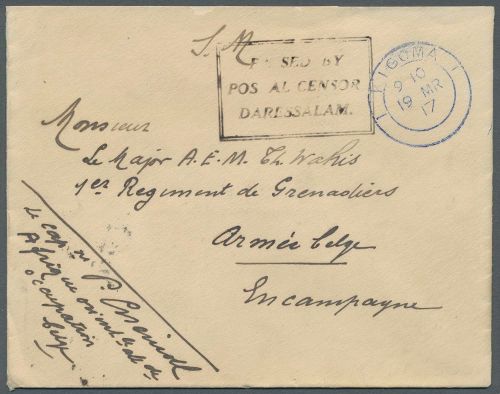 S. M
P SED BY
POS AL CENSOR
DARESSALAM.
KIGOMA
9 10
19 MR
17
Monsieur
Le Major A.E.M. Th Wahis
1er Regiment de Grenadiers
Armée belge
En campagne
Le cap
P.
Afrique orientale
occupation
belge